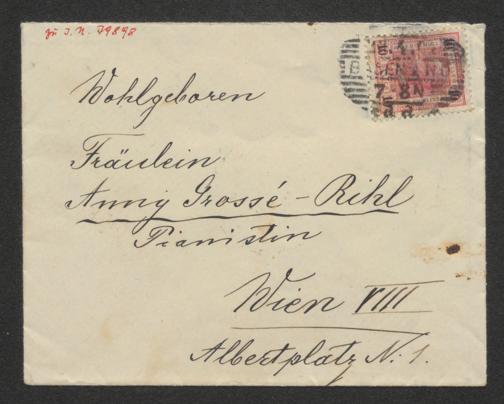 zu I.N. 79898
7-8N
Wohlgeboren
Fräulein
Anny Grossé-Rihl
Pianistin
Wien VIII
Albertplatz N: 1.